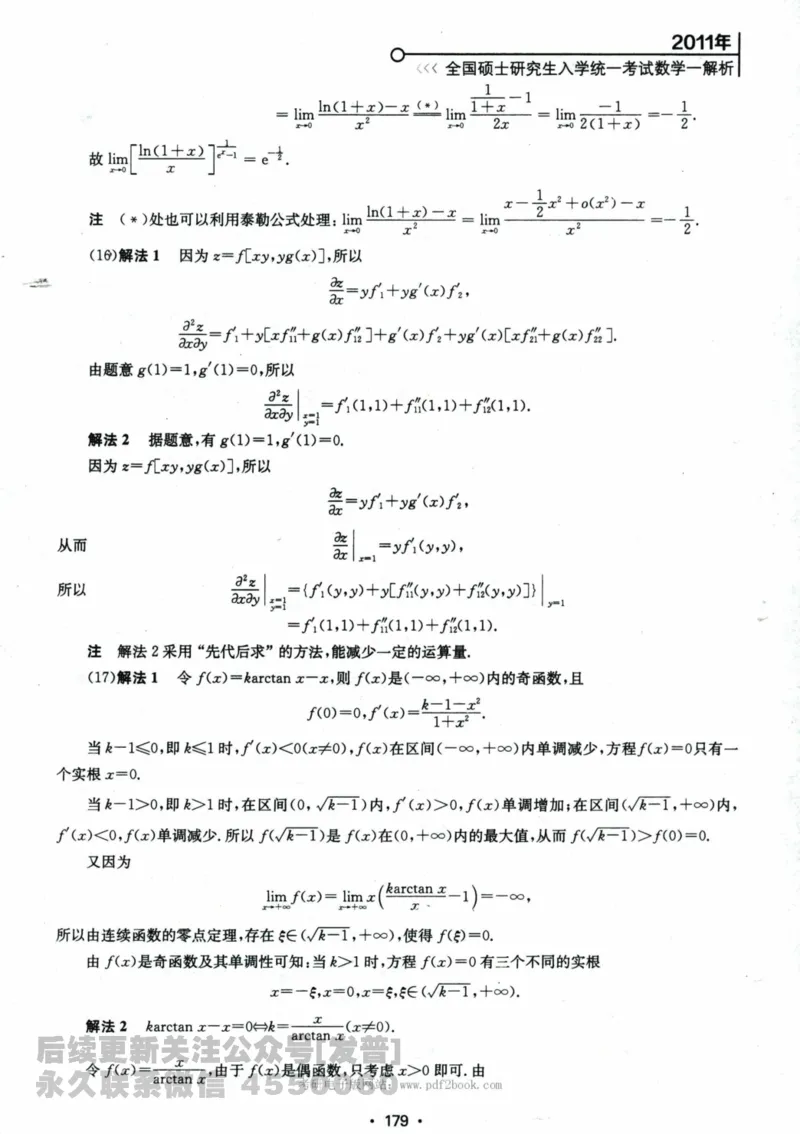 2011年
<<< 全国硕士研究生入学统一考试数学一解析
= lim_{x→0} (ln(1+x)-x)/x² =^{(*)} lim_{x→0} (1/(1+x) -1)/(2x) = lim_{x→0} (-1)/(2(1+x)) = -1/2.
故 lim_{x→0} [ln(1+x)/x]^{1/(e^x-1)} = e^{-1/2}.
注 (*)处也可以利用泰勒公式处理: lim_{x→0} (ln(1+x)-x)/x² = lim_{x→0} (x-(1/2)x²+o(x²)-x)/x² = -1/2.
(16)解法1 因为 z=f[xy,yg(x)],所以
∂z/∂x = yf′₁+yg′(x)f′₂,
∂²z/∂x∂y = f′₁+y[xf″₁₁+g(x)f″₁₂]+g′(x)f′₂+yg′(x)[xf″₂₁+g(x)f″₂₂].
由题意 g(1)=1,g′(1)=0,所以
∂²z/∂x∂y |_{x=1, y=1} = f′₁(1,1)+f″₁₁(1,1)+f″₁₂(1,1).
解法2 据题意,有 g(1)=1,g′(1)=0.
因为 z=f[xy,yg(x)],所以
∂z/∂x = yf′₁+yg′(x)f′₂,
从而 ∂z/∂x |_{x=1} = yf′₁(y,y),
所以 ∂²z/∂x∂y |_{x=1, y=1} = {f′₁(y,y)+y[f″₁₁(y,y)+f″₁₂(y,y)]} |_{y=1}
= f′₁(1,1)+f″₁₁(1,1)+f″₁₂(1,1).
注 解法2采用“先代后求”的方法,能减少一定的运算量.
(17)解法1 令 f(x)=karctan x-x,则 f(x)是(-∞,+∞)内的奇函数,且
f(0)=0,f′(x)=(k-1-x²)/(1+x²).
当 k-1≤0,即 k≤1 时,f′(x)<0(x≠0),f(x)在区间(-∞,+∞)内单调减少,方程f(x)=0只有一
个实根 x=0.
当 k-1>0,即 k>1 时,在区间(0,√(k-1))内,f′(x)>0,f(x)单调增加;在区间(√(k-1),+∞)内,
f′(x)<0,f(x)单调减少.所以 f(√(k-1))是 f(x)在(0,+∞)内的最大值,从而 f(√(k-1))>f(0)=0.
又因为
lim_{x→+∞} f(x) = lim_{x→+∞} x(karctan x/x -1) = -∞,
所以由连续函数的零点定理,存在 ξ∈(√(k-1),+∞),使得 f(ξ)=0.
由 f(x)是奇函数及其单调性可知:当 k>1 时,方程 f(x)=0 有三个不同的实根
x=-ξ,x=0,x=ξ,ξ∈(√(k-1),+∞).
解法2 karctan x-x=0⇔k=x/arctan x (x≠0).
令 f(x)=x/arctan x,由于 f(x)是偶函数,只考虑 x>0 即可.由
后续更新关注公众号[发普]
永久联系微信
www.pdf2book.com
· 179 ·